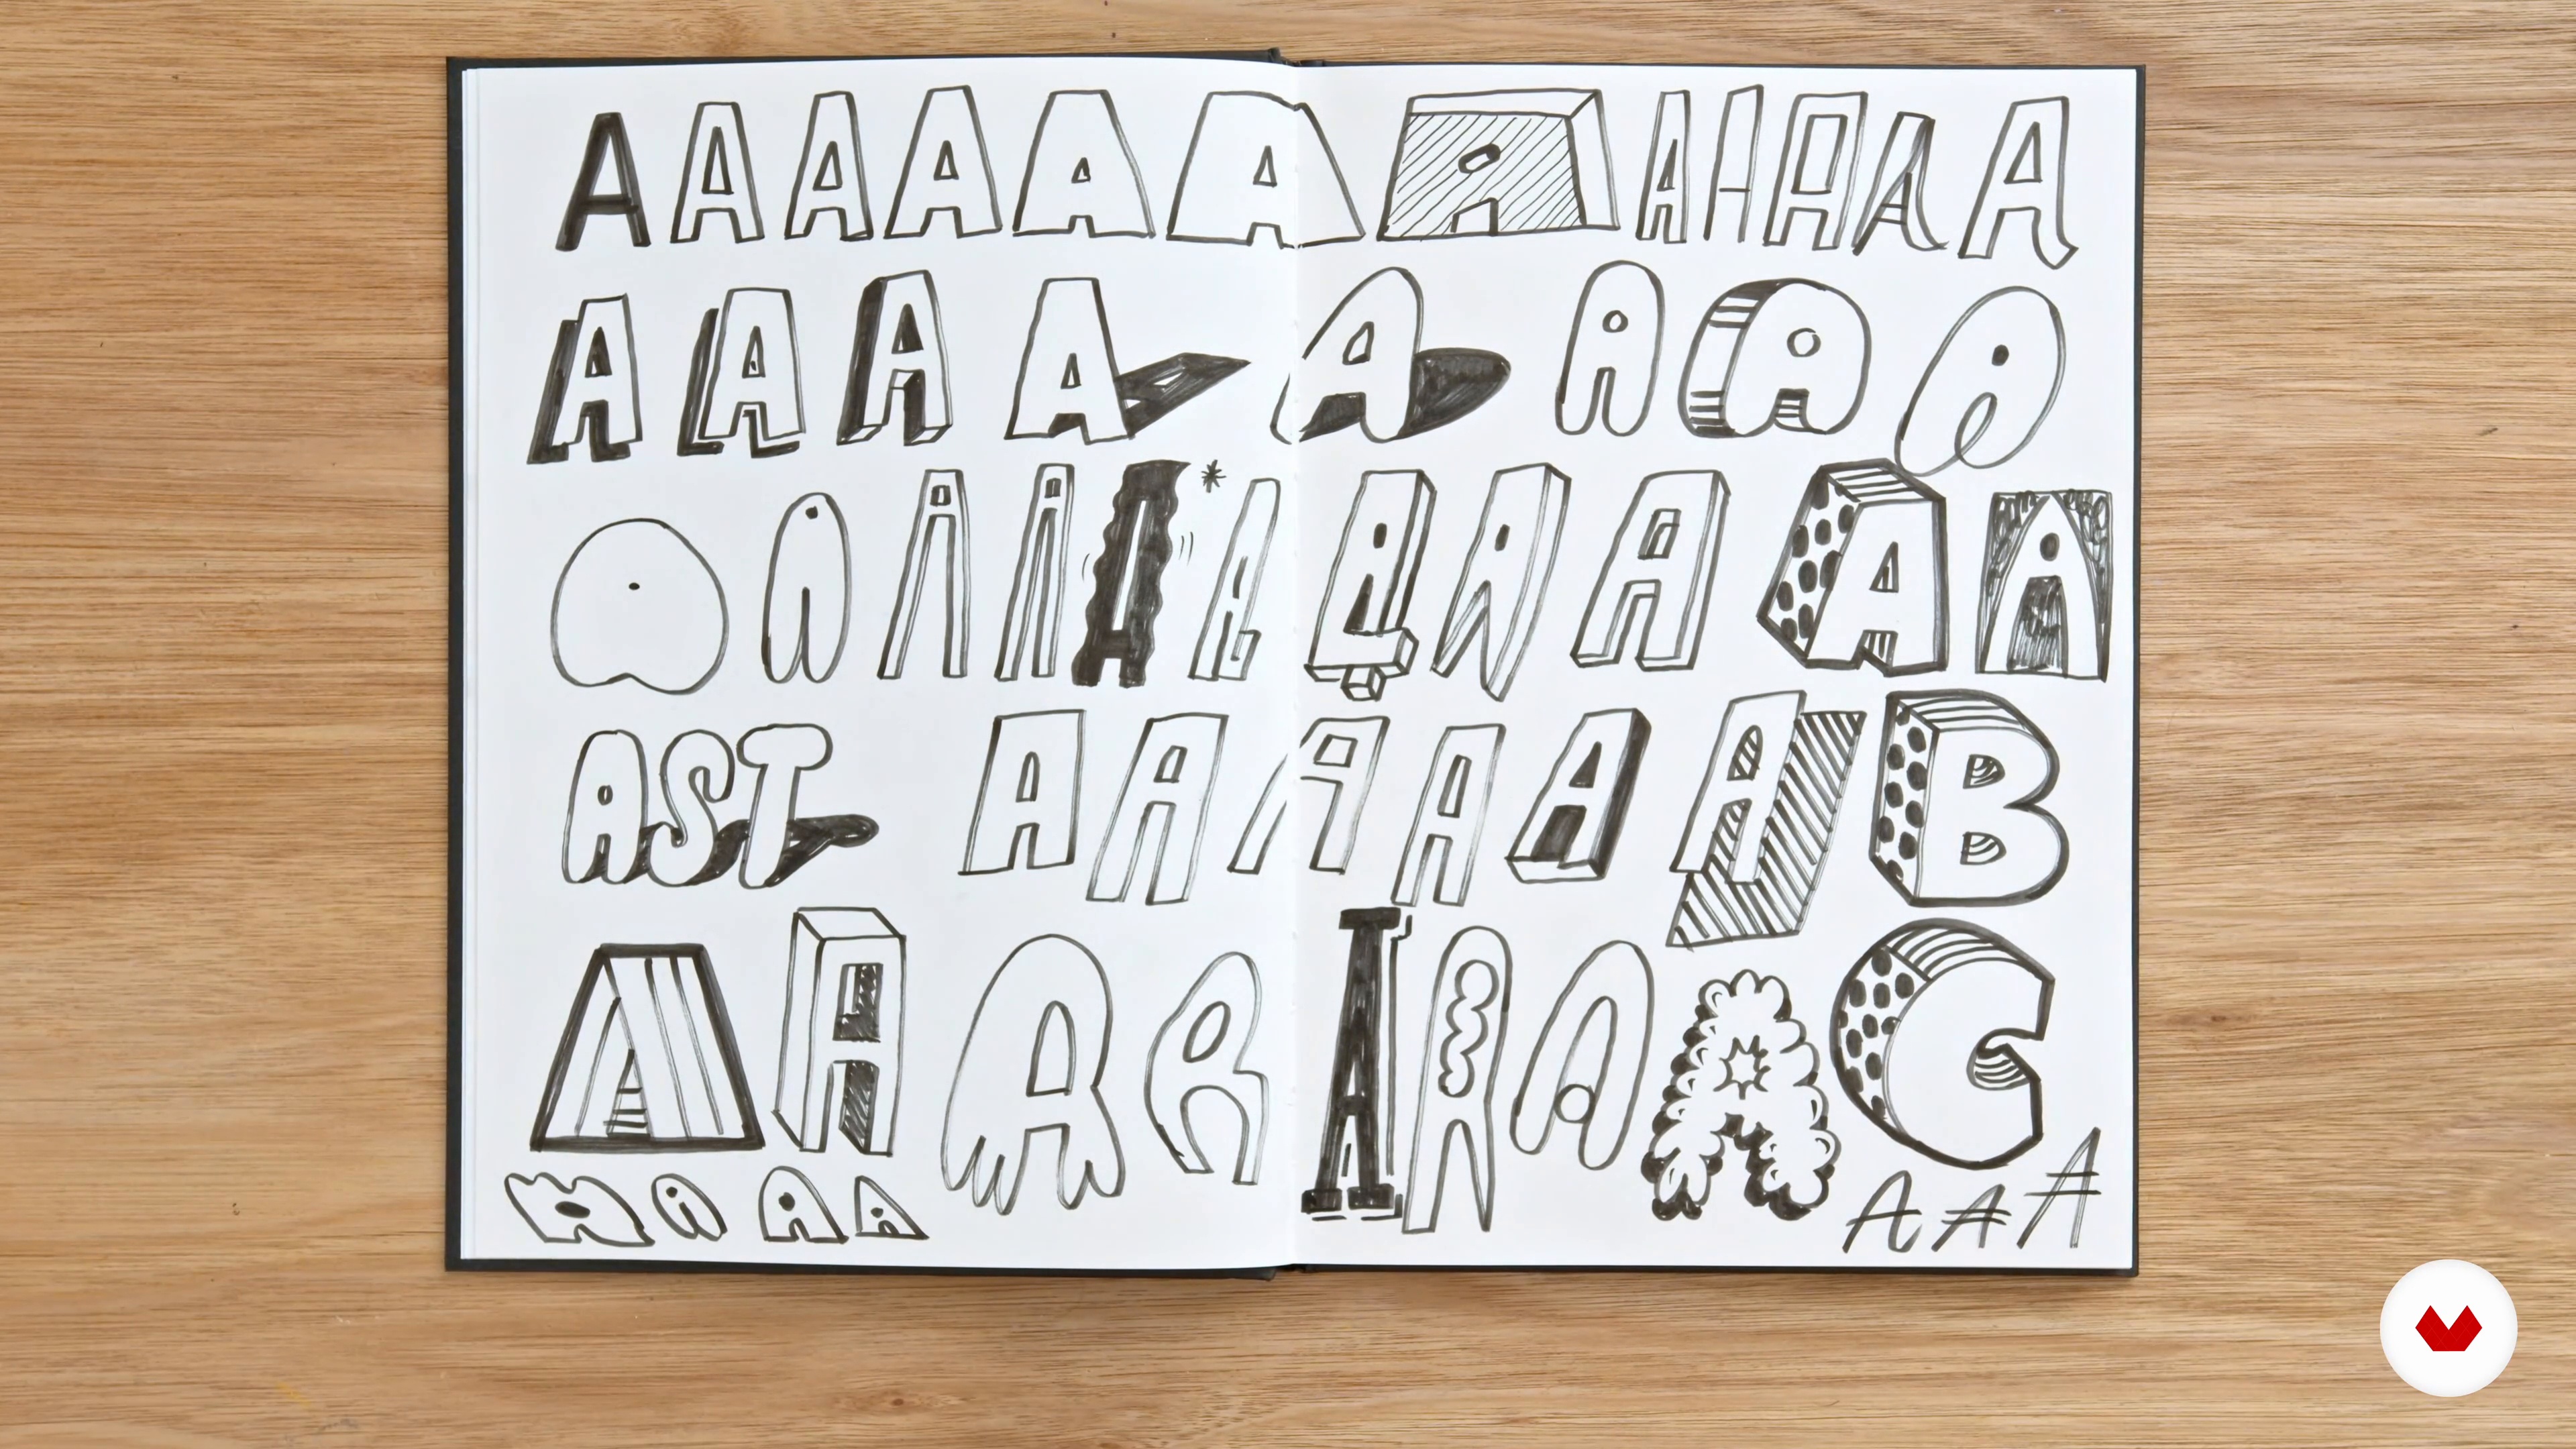 A A A A A A A A A A A A
A A A A A A A A
A A A A A * A A A A A A
AST A A A A A A B
A A A A A A A A C
A A A A A A A